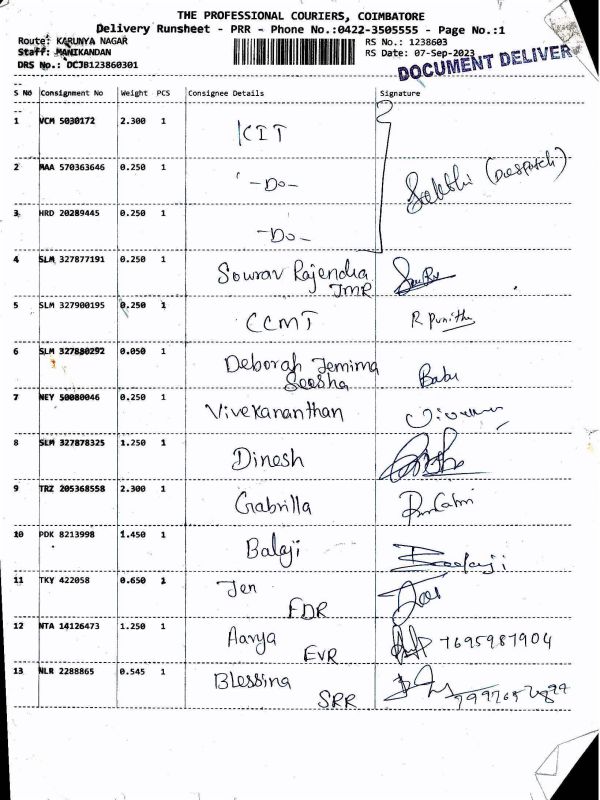 THE PROFESSIONAL COURIERS, COIMBATORE
Delivery Runsheet - PRR - Phone No.:0422-3505555 - Page No.:1
Route: KARUNYA NAGAR RS No.: 1238603
Staff: MANIKANDAN RS Date: 07-Sep-2023
DRS No.: DCJB123860301 DOCUMENT DELIVER
S No Consignment No Weight PCS Consignee Details Signature
1 VCM 5030172 2.300 1 KIT
2 MAA 570363646 0.250 1 -Do- (Despatch)
3 HRD 20289445 0.250 1 -Do-
4 SLM 327877191 0.250 1 Sourav Rajendra
JMR
5 SLM 327900195 0.250 1 CCMT R Punitha
6 SLM 327880292 0.050 1 Deborah Jemima
Seesha Babu
7 NEY 50080046 0.250 1 Vivekananthan
8 SLM 327878325 1.250 1 Dinesh
9 TRZ 205368558 2.300 1 Gabrilla
10 PDK 8213998 1.450 1 Balaji
11 TKY 422058 0.650 1 Jen
EDR
12 NTA 14126473 1.250 1 Aarya 7695987904
EVR
13 NLR 2288865 0.545 1 Blessina
SRR